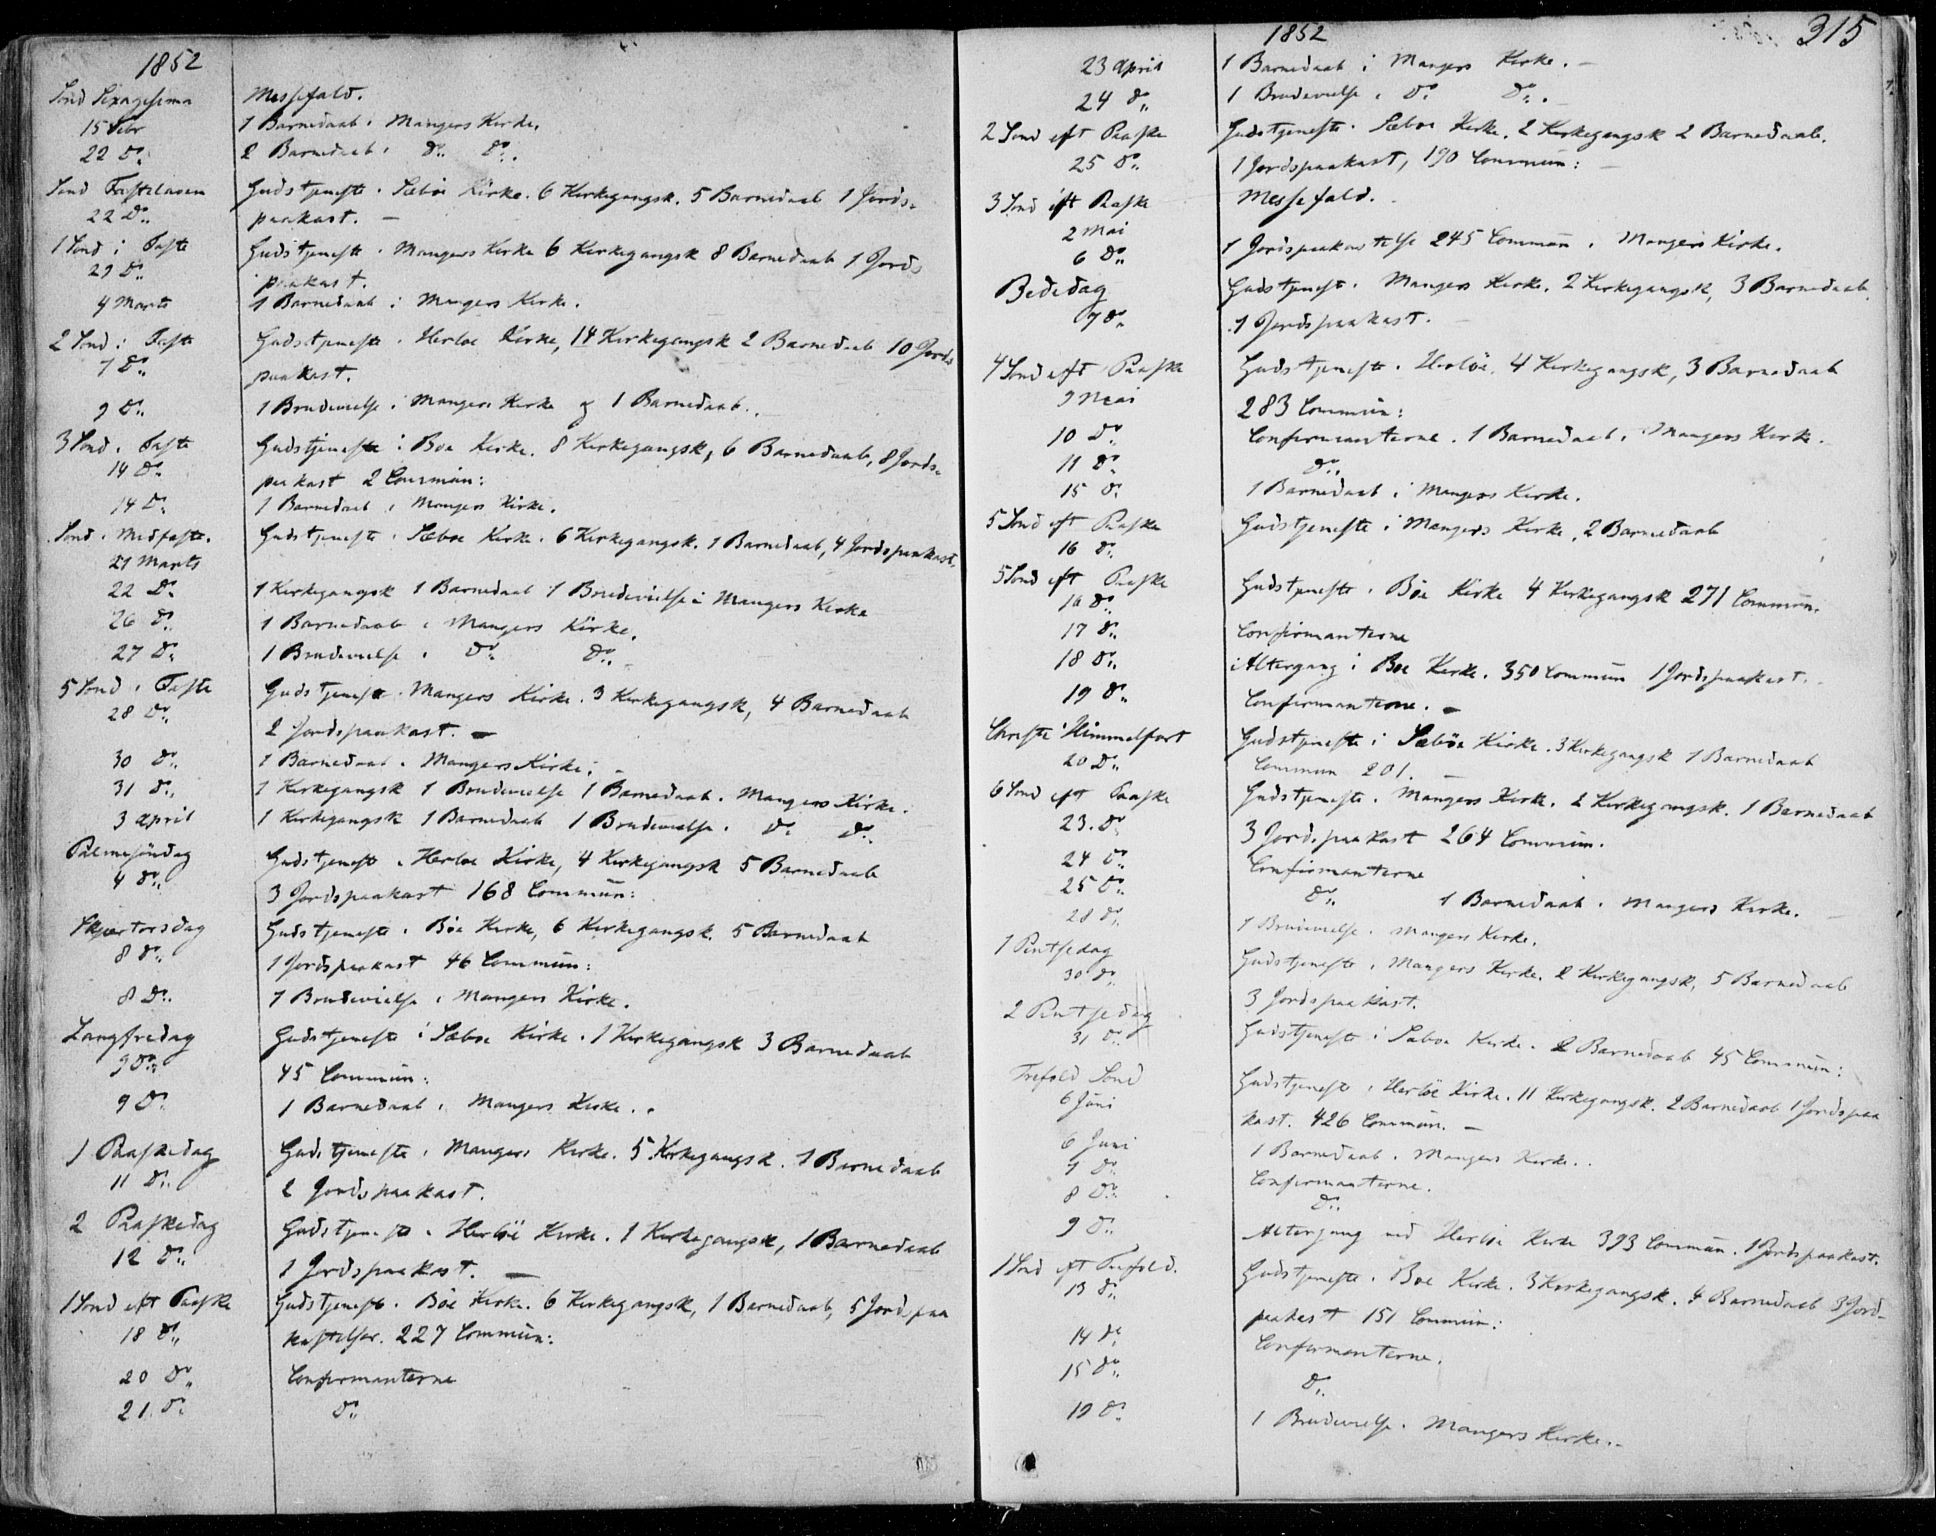 1852
Sønd Sexagesima Messefald.
15 Febr 1 Barnedaab i Mangers Kirke.
22 Do: 2 Barnedaab i Do: Do:.
Sønd Fastelaven Gudstjeneste i Sæbøe Kirke. 6 Kirkegangsk. 5 Barnedaab 1 Jords-
22 Do: paakast. –
1 Sønd i Faste Gudstjeneste i Mangers Kirke 6 Kirkegangsk 8 Barnedaab 1 Jords
29 Do: paakast.
4 Marts 1 Barnedaab i Mangers Kirke.
2 Sønd i Faste Gudstjeneste i Herløe Kirke, 14 Kirkegangsk 2 Barnedaab 10 Jords
7 Do: paakast.
9 Do: 1 Brudevielse i Mangers Kirke og 1 Barnedaab.
3 Sønd i Faste Gudstjeneste i Boe Kirke. 8 Kirkegangsk, 6 Barnedaab, 8 Jords-
14 Do: paakast 2 Commun:
14 Do: 1 Barnedaab i Mangers Kirke.
Sønd i Medfaste. Gudstjeneste i Sæbøe Kirke. 6 Kirkegangsk. 1 Barnedaab, 4 Jordspaakast.
21 Marts
22 Do: 1 Kirkegangsk 1 Barnedaab 1 Brudevielse i Mangers Kirke
26 Do: 1 Barnedaab i Mangers Kirke.
27 Do: 1 Brudevielse i Do: Do:.
5 Sønd i Faste Gudstjeneste i Mangers Kirke. 3 Kirkegangsk, 4 Barnedaab
28 Do: 2 Jordspaakast. –
30 Do: 1 Barnedaab i Mangers Kirke.
31 Do: 1 Kirkegangsk 1 Brudevielse 1 Barnedaab i Mangers Kirke.
3 April 1 Kirkegangsk 1 Barnedaab 1 Brudevielse i Do: Do:
Palmesøndag Gudstjeneste i Herløe Kirke, 4 Kirkegangsk 5 Barnedaab
4 Do: 3 Jordspaakast 168 Commun:
Skjærtorsdag Gudstjeneste i Bøe Kirke, 6 Kirkegangsk. 5 Barnedaab
8 Do: 1 Jordspaakast 46 Commun:
8 Do: 1 Brudevielse i Mangers Kirke.
Langfredag Gudstjeneste i Sæbøe Kirke. 1 Kirkegangsk 3 Barnedaab
9 Do: 45 Commun:
9 Do: 1 Barnedaab i Mangers Kirke.
1 Paaskedag Gudstjeneste i Mangers Kirke. 5 Kirkegangsk. 1 Barnedaab
11 Do: 2 Jordspaakast.
2 Paaskedag Gudstjeneste i Herløe Kirke. 1 Kirkegangsk, 1 Barnedaab
12 Do: 1 Jordspaakast. –
1 Sønd eft Paaske Gudstjeneste i Bøe Kirke. 6 Kirkegangsk, 1 Barnedaab, 5 Jordspaa
18 Do: kastelser. 227 Commun:
20 Do: Confirmanterne
21 Do: Do:
315
1852
23 April 1 Barnedaab i Mangers Kirke. –
24 Do: 1 Brudevielse i Do: Do:.
2 Sønd eft Paaske Gudstjeneste i Sæbøe Kirke. 2 Kirkegangsk 2 Barnedaab.
25 Do: 1 Jordspaakast, 190 Commun: –
3 Sønd eft Paaske Messefald.
2 Mai
6 Do: 1 Jordspaakastelse 245 Commun i Mangers Kirke.
Bededag Gudstjeneste i Mangers Kirke. 2 Kirkegangsk, 3 Barnedaab.
7 Do: 1 Jordspaakast.
4 Sønd eft Paaske Gudstjeneste i Herløe. 4 Kirkegangsk, 3 Barnedaab
9 Mai 283 Commun:
10 Do: Confirmanterne. 1 Barnedaab i Mangers Kirke.
11 Do: Do:
15 Do: 1 Barnedaab i Mangers Kirke.
5 Sønd eft Paaske Gudstjeneste i Mangers Kirke, 2 Barnedaab
16 Do:
5 Sønd eft Paaske Gudstjeneste i Bøe Kirke 4 Kirkegangsk 271 Commun.
16 Do:
17 Do: Confirmanterne
18 Do: Altergang i Boe Kirke. 350 Commun 1 Jordspaakast.
19 Do: Confirmanterne. –
Christi Himmelfart Gudstjeneste i Sæbøe Kirke. 3 Kirkegangsk 1 Barnedaab
20 Do: Commun 201. –
6 Sønd eft Paaske Gudstjeneste i Mangers Kirke. 2 Kirkegangsk. 1 Barnedaab
23. Do: 3 Jordspaakast 264 Commun.
24 Do: Confirmanterne
25 Do: Do: 1 Barnedaab i Mangers Kirke.
28 Do: 1 Brudevielse i Mangers Kirke.
1 Pintsedag Gudstjeneste i Mangers Kirke. 2 Kirkegangsk, 5 Barnedaab
30 Do: 3 Jordspaakast.
2 Pintsedag Gudstjeneste i Sæbøe Kirke. 2 Barnedaab 45 Commun:
31 Do:
Trefold Sønd Gudstjeneste i Herløe Kirke. 11 Kirkegangsk. 2 Barnedaab 1 Jordspaa
6 Juni kast. 426 Commun. –
6 Juni 1 Barnedaab i Mangers Kirke.
7 Do: Confirmanterne.
8 Do: Do:
9 Do: Altergang ved Herløe Kirke 393 Commun. 1 Jordspaakast.
1 Sønd eft Trefold. Gudstjeneste i Boe Kirke. 3 Kirkegangsk. 4 Barnedaab 3 Jord-
13 Do: paakast 151 Commun:
14 Do: Confirmanterne.
15 Do: Do:
19 Do: 1 Brudevielse i Mangers Kirke.